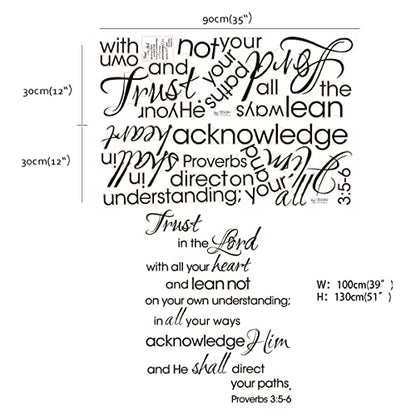 90cm(35")
with
own
not
your
and
your
paths
Lord
all
the
Trust
He
your
ways
lean
30cm(12")
heart
acknowledge
30cm(12")
shall
in
Proverbs
and
Him
direct
on
your
all
3:5-6
understanding;
Trust
in the Lord
with all your heart
and lean not
on your own understanding;
in all your ways
acknowledge Him
and He shall direct
your paths.
Proverbs 3:5-6
W: 100cm(39")
H: 130cm(51")